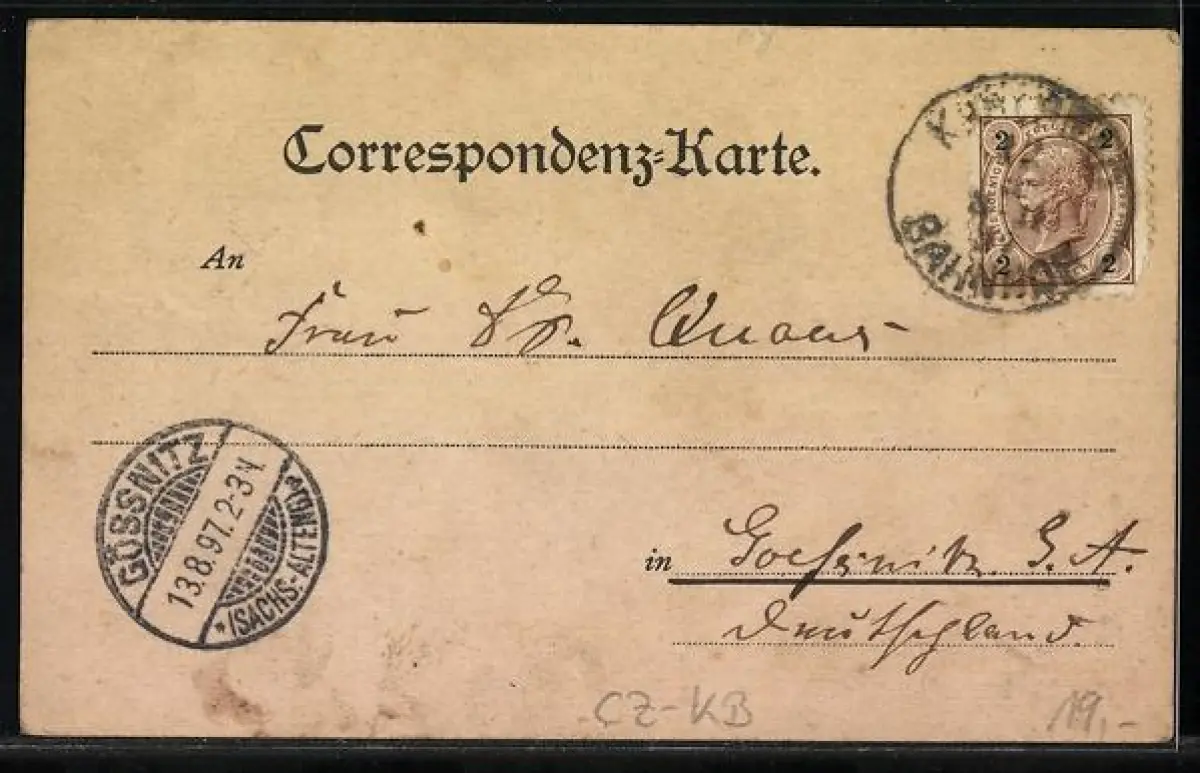 Correspondenz-Karte.
2 2
2 2
BAHNHOF
An
Frau Dr.
GÖSSNITZ
13.8.97.2-3N.
*(SACHS.-ALTENB.)
in Goessnitz. S. A.
Deutschland.
CZ-KB
19,-